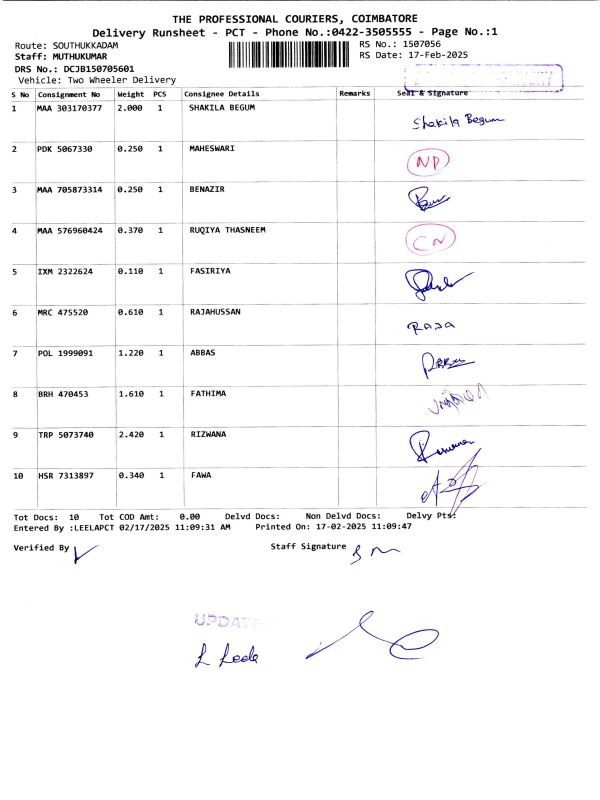 THE PROFESSIONAL COURIERS, COIMBATORE
Delivery Runsheet - PCT - Phone No.:0422-3505555 - Page No.:1
Route: SOUTHUKKADAM RS No.: 1507056
Staff: MUTHUKUMAR RS Date: 17-Feb-2025
DRS No.: DCJB150705601
Vehicle: Two Wheeler Delivery
S No Consignment No Weight PCS Consignee Details Remarks Seal & Signature
1 MAA 303170377 2.000 1 SHAKILA BEGUM Shakila Begum
2 PDK 5067330 0.250 1 MAHESWARI NP
3 MAA 705873314 0.250 1 BENAZIR
4 MAA 576960424 0.370 1 RUQIYA THASNEEM CN
5 IXM 2322624 0.110 1 FASIRIYA
6 MRC 475520 0.610 1 RAJAHUSSAN RAJA
7 POL 1999091 1.220 1 ABBAS
8 BRH 470453 1.610 1 FATHIMA
9 TRP 5073740 2.420 1 RIZWANA
10 HSR 7313897 0.340 1 FAWA
Tot Docs: 10 Tot COD Amt: 0.00 Delvd Docs: Non Delvd Docs: Delvy Pts:
Entered By :LEELAPCT 02/17/2025 11:09:31 AM Printed On: 17-02-2025 11:09:47
Verified By Staff Signature
UPDATED